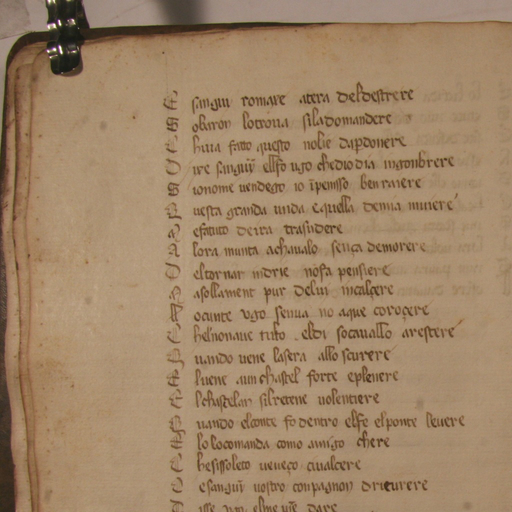 E sangui romare atera deldestrere
S obaron lotroua siladomandere
C hiua fatto questo nolie dapdonere
D ire sanguin elfo ugo chedio dia ingonbrere
S ionome uendego io ipensso ben raiere
Q uesta granda unda e quella demia muiere
A efatuto deira trasudere
A lora munta achaualo sença demorere
D el tornar indrie nosa pensiere
A asollament pur delui incalçere
H ocunte ugo senua no aque coroçere
C helnonaue tuto eldi so cauallo arestere
Q uando uene lasera allo scurere
E luene aun chastel forte eplenere
E lchastelan silretene uolentiere
Q uando elconte fo dentro elfe elponte leuere
E lo locomanda como amigo chere
C hesissoleto ueneço ciualcere
C esanguin uostro conpagnon driturere